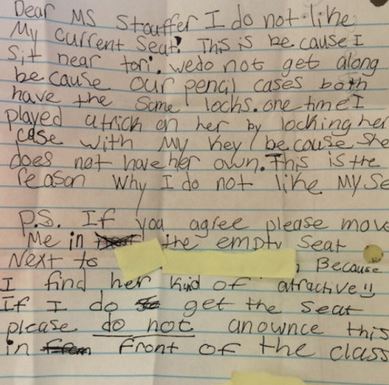 Dear MS Stouffer I do not like
My current seat. This is be cause I
sit near tori. we do not get along
be cause our pencil cases both
have the same locks. one time I
played a trick on her by locking her
case with my key because she
does not have her own. This is the
reason why I do not like my se
P.S. If you agree please move
Me in the empty seat
Next to Because
I find her kid of atractive!!
If I do get the seat
please do not anounce this
in front of the class